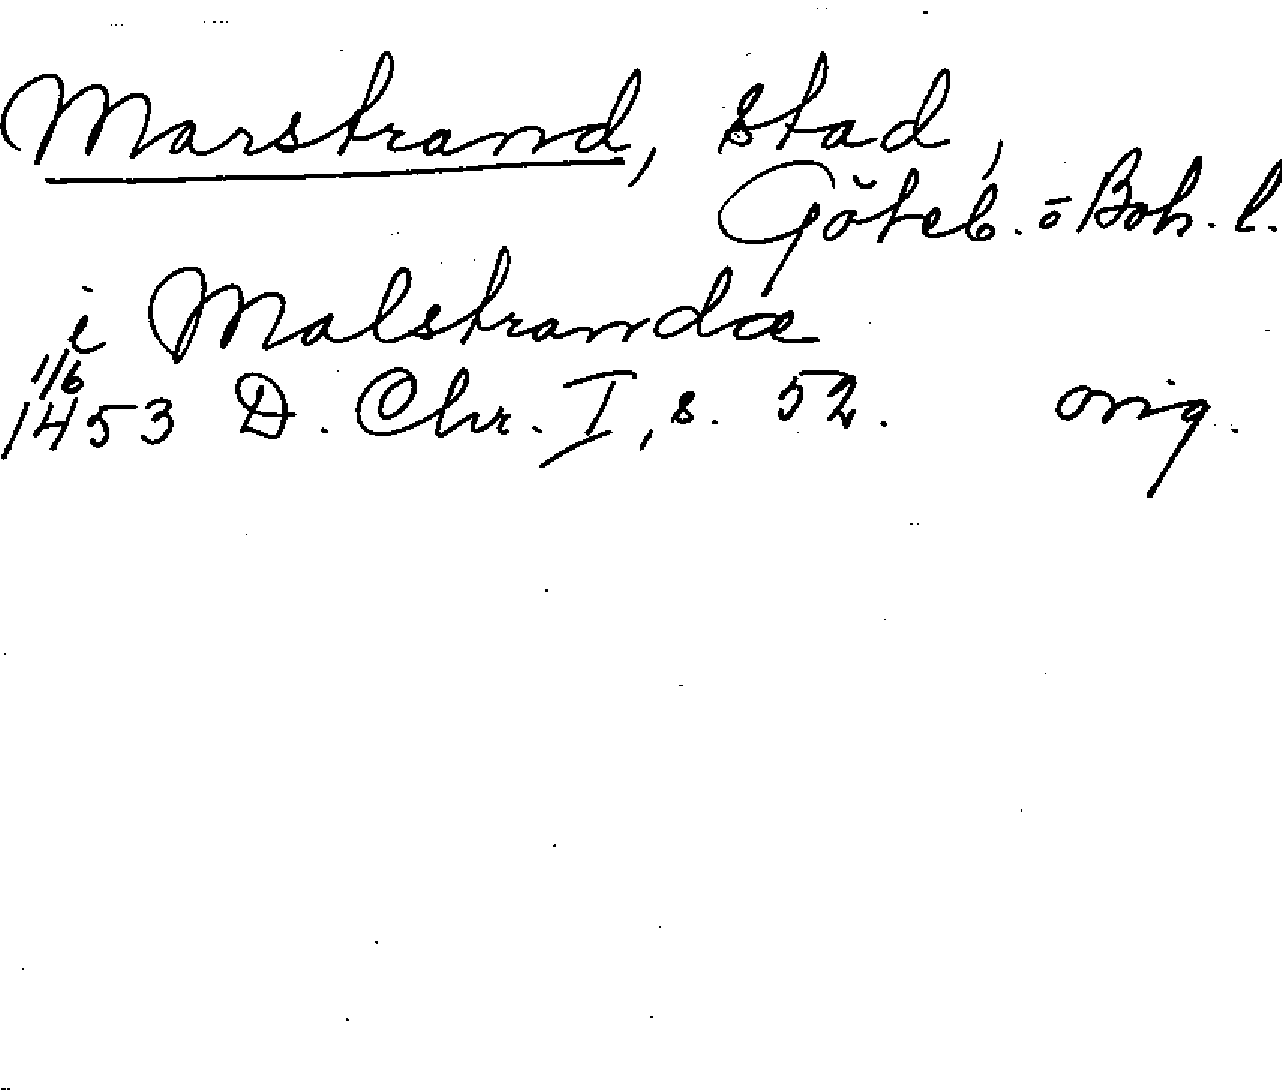 Marstrand, stad,
Göteb. o Boh. l.
i Malstrandæ
1/6
1453 D. Chr. I, s. 52. orig.